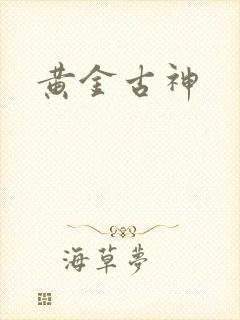 黄金古神
海草夢